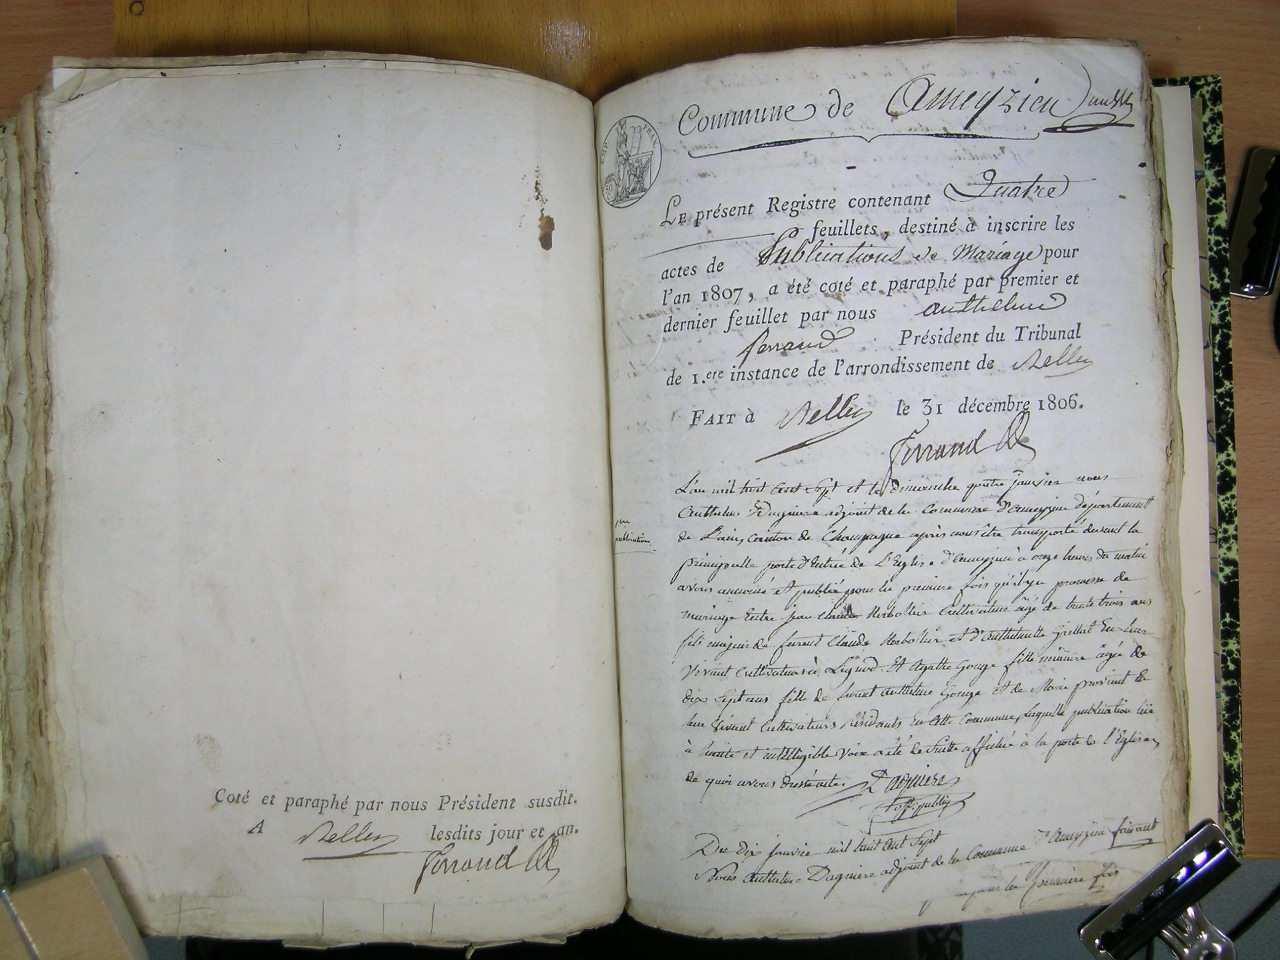 Coté et paraphé par nous Président susdit.
A Belley lesdits jour et an.
Ferrand
Commune de Ameyzieu
LE présent Registre contenant Quatre
feuillets, destiné à inscrire les
actes de Publications de Mariage pour
l'an 1807, a été coté et paraphé par premier et
dernier feuillet par nous anthelme
ferrand Président du Tribunal
de 1.ere instance de l'arrondissement de Belley
FAIT à Belley le 31 décembre 1806.
Ferrand
1ere
publication
L'an mil huit cent Sept et le dimanche quatre janvier nous
Anthelme Daguiere adjoint de la Commune d'ameyzieu département
de L'ain, canton de Champagne après nous être transporté devant la
principalle porte d'Entrée de L'Eglise d'ameyzieu à onze heures du matin
avons annoncé et publié pour la première fois qu'il y a promesse de
mariage Entre jean Claude Cultivateur âgé de trente trois ans
fils majeur de Claude et d'anthelmette En leur
Vivant Cultivateurs à Et Agathe Gouge fille mineure âgée de
dix Sept ans fille de anthelme Gouge et de Marie
leur Vivant Cultivateurs Résidants En Cette Commune, laquelle publication lue
à haute et intelligible Voix a été de Suitte affichée à la porte de l'Eglise
de quoi avons dressé acte. Daguiere
off. public
Du dix janvier mil huit cent Sept
Nous anthelme Daguiere adjoint de la Commune d'Ameyzieu faisant
pour la première fois